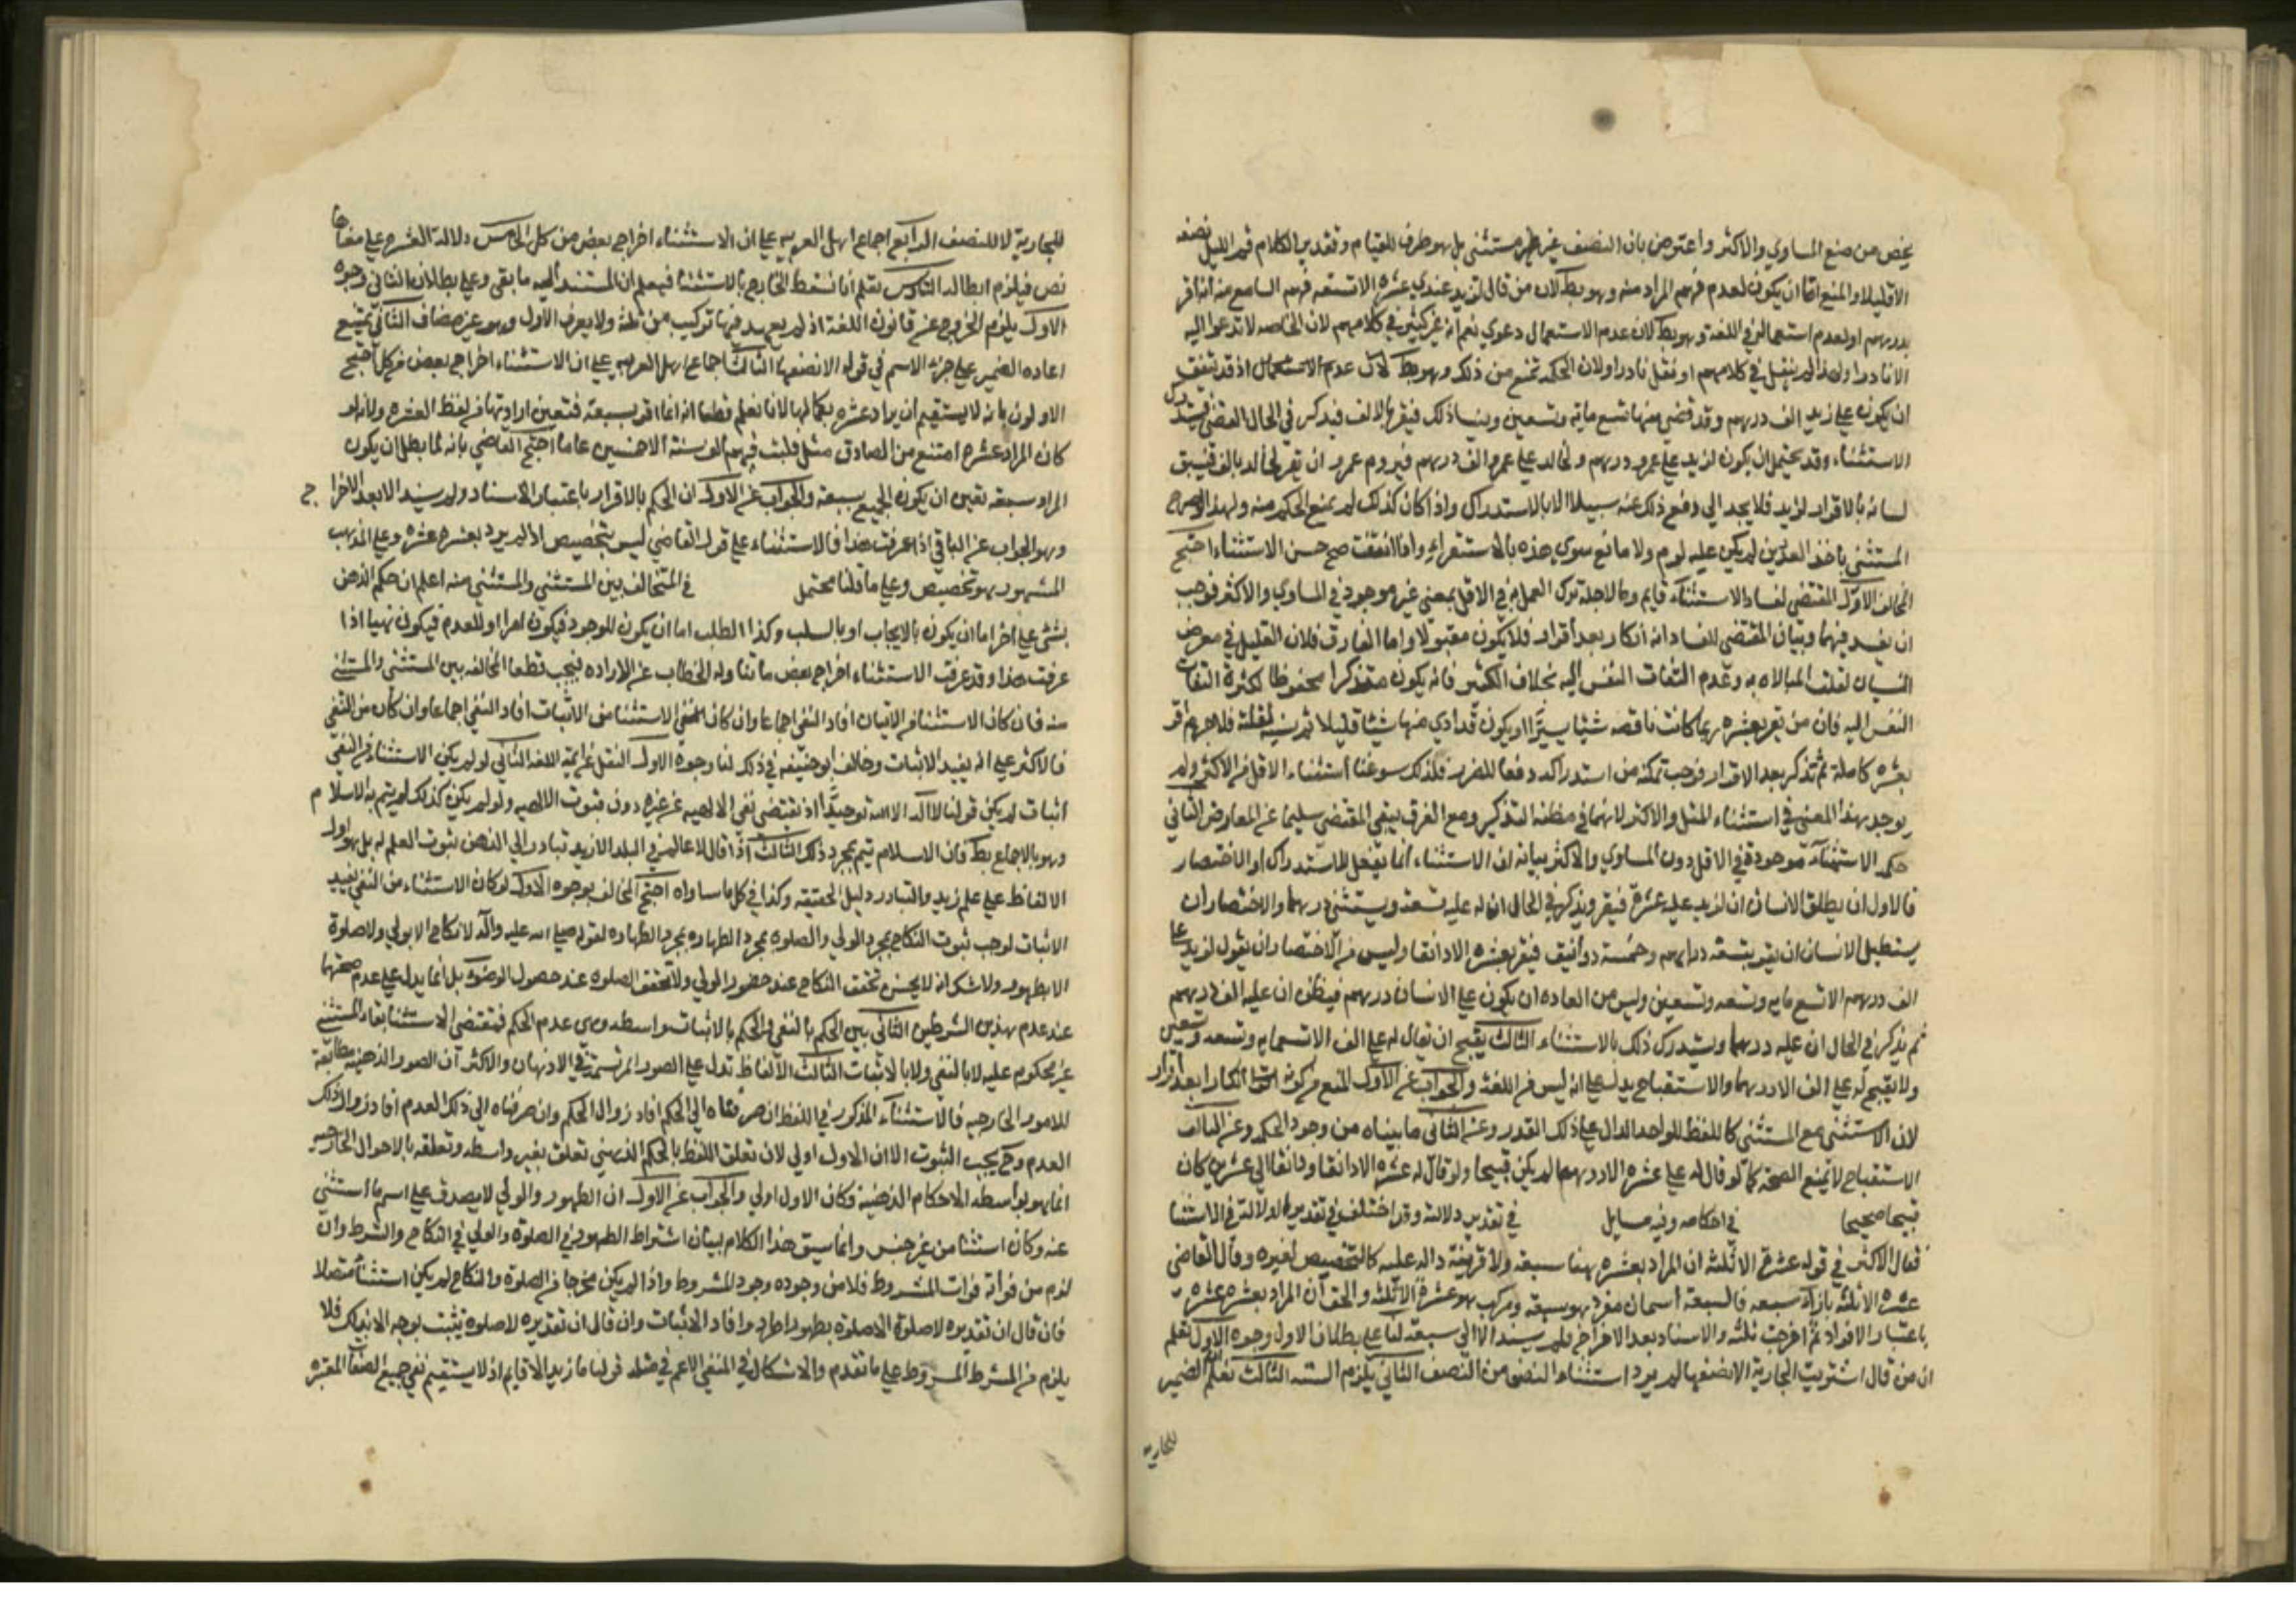 يخص من منع المساوي والاكثر واعترض بان النصف غير مستثنى بل هو ظرف للقيام وتقدير الكلام قم الليل نصفه
الا قليلا والمنع اما ان يكون لعدم فهم المراد منه وهو بط لان من قال لزيد عندي عشرة الا تسعة فهم السامع منه انه اقر
بدرهم او لعدم استعماله في اللغة وهو بط لان عدم الاستعمال دعوي نعم انه غير كثير في كلامهم لان الخاصه لا تدعوا اليه
الا نادرا ولهذا لم ينقل في كلامهم او نقل نادرا ولان الحكمة تمنع من ذلك وهو بط لان عدم الاستعمال اذ قد يتفق
ان يكون على زيد الف درهم وقد قضى منها تسع مايه وتسعين وينسا ذلك فيقر بالالف فيذكر في الحال القضى فيستدرك
الاستثناء وقد يحتمل ان يكون لزيد على عمرو درهم ولخالد على عمرو الف درهم فيروم عمرو ان يقر لخالد بالف فيسبق
لسانه بالاقرار لزيد فلا يجد الي دفع ذلك عنه سبيلا الا بالاستدراك واذا كان كذلك لم يمنع الحكم منه ولهذا
المستثنى باخذ العذرين لم يكن عليه لوم ولا مانع سوي هذه بالاستقراء واما اتفقت صح حسن الاستثناء احتج
المخالف الاول المقتضي لفساد الاستثناء قايم وما لاجله ترك العمل به في الاقل بمعنى غير موجود في المساوي والاكثر فوجب
ان يفسد فيهما وبيان المقتضي للفساد انه انكار بعد اقرار فلا يكون مقبولا واما الفارق فلان القليل في معرض
النسيان لقلت المبالاه به وعدم التفات النفس اليه بخلاف الكثير فانه يكون متذكرا محفوظا لكثرة التفات
النفس اليه فان من يقر بعشره ربما كانت ناقصه شيئا يسيرا او يكون قد ادي منها شيئا قليلا ثم نسيه لقلته فلا جرم اقر
بعشره كاملة ثم تذكر بعد الاقرار فوجب تمكنه من استدراكه دفعا للضرر فلذلك سوغنا استثناء الاقل من الاكثر ولم
يوجد هذا المعنى في استثناء المثل والاكثر لانهما في مظنه التذكير ومع الفرق يبقى المقتضي سليما عن المعارض الثاني
حكم الاستثناء موجودة في الاقل دون المساوي والاكثر بيانه ان الاستثناء انما يفعل للاستدراك او الاختصار
فالاول ان يطلق الانسان ان لزيد عليه عشرة فيقر ويذكر في الحال ان له عليه تسعة ويستثني درهما والاختصار ان
يستطيل الانسان ان يقر بتسعة دراهم وخمسة دوانيق فيقر بعشره الا دانقا وليس من الاختصار ان يقول لزيد على
الف درهم الا تسع مايه وتسعه وتسعين وليس من العاده ان يكون على الانسان درهم فيظن ان عليه الف درهم
ثم يذكر في الحال ان عليه درهما ويستدرك ذلك بالاستثناء الثالث يقبح ان يقال له على الف الا تسعمايه وتسعه وتسعين
ولا يقبح له على الف الا درهما والاستقباح يدل على انه ليس من اللغة والجواب عن الاول المنع من كونه انكارا بعد اقرار
لان الاستثنى مع المستثنى كاللفظ الواحد الدال على ذلك القدر وعن الثاني ما بيناه من وجود الحكمه وعن الثالث
الاستقباح لا يمنع الصحة كما لو قال له علي عشره الا درهما لم يكن قبيحا ولو قال له عشره الا دانقا ودانقا الي عشرين كان
قبيحا صحيحا في احكامه وفيه مسايل في تقدير دلالته وقد اختلف في تقدير الدلالة في الاستثنا
فقال الاكثر في قوله عشرة الا ثلثه ان المراد بعشره هنا سبعه والا قرينة داله عليه كالتخصيص لغيره وقال القاضي
عشره الا ثلثه بازاء سبعه فالسبعه اسمان مفرد هو سبعه ومركب هو عشرة الا ثلثه والحق ان المراد بعشره عشره
باعتبار الافراد ثم اخرجت ثلثه والاسناد بعد الاخراج فلم يسند الا الي سبعه لنا على بطلان الاول وجوه الاول نعلم
ان من قال اشتريت الجارية الا نصفها لم يرد استثناء النصف من النصف الثاني يلزم التسه الثالث نعلم ان الضمير
للجاريه
للجارية لا للنصف الرابع اجماع اهل العربيه على ان الاستثناء اخراج بعض من كل الخامس دلالة العشره على معناها
نص فيلزم ابطاله السادس نعلم انا نسقط الخارج بالاستثناء فيعلم ان المستند اليه ما بقى وعلى بطلان الثاني وجوه
الاول يلزم الخروج عن قانون اللغة اذ لم يعهد فيها تركيب من ثلثة ولا يعرف الاول وهو غير مضاف الثاني يمتنع
اعاده الضمير على جزء الاسم في قوله الا نصفها الثالث اجماع اهل العربيه على ان الاستثناء اخراج بعض من كل احتج
الاولون بانه لا يستقيم ان يراد عشره بكمالها لانا نعلم قطعا انه انما اقر بسبعة فتعين ارادتها من لفظ العشره ولانه لو
كان المراد عشره امتنع من الصادق مثل فلبث فيهم الف سنة الا خمسين عاما احتج القاضي بانه لما بطل ان يكون
المراد سبعه تعين ان يكون الجميع بسبعه والجواب عن الاول ان الحكم بالاقرار باعتبار الاسناد ولم يسند الا بعد الاخراج
وهو الجواب عن الباقي اذا عرفت هذا فالاستثناء على قول القاضي ليس بتخصيص اذ لم يرد بعشره عشره وعلى المذهب
المشهور هو تخصيص وعلى ما قلنا محتمل في التخالف بين المستثنى والمستثنى منه اعلم ان حكم الذهن
بشئ على اخر اما ان يكون بالايجاب او بالسلب وكذا الطلب اما ان يكون للوجود فيكون امرا او للعدم فيكون نهيا اذا
عرفت هذا وقد عرفت الاستثناء اخراج بعض ما تناوله الخطاب عن الاراده فيجب قطعا المخالفه بين المستثنى والمستثنى
منه فان كان الاستثناء من الاثبات افاد النفي اجماعا وان كان الاستثنا من الاثبات افاد النفي اجماعا وان كان من النفي
فالاكثر على انه يفيد الاثبات وخالف ابو حنيفه في ذلك لنا وجوه الاول النقل عن ايمة اللغه الثاني لو لم يكن الاستثناء من النفي
اثبات لم يكن قولنا لا اله الا الله توحيدا اذ يقتضي نفي الالهيه عن غيره دون ثبوت الالهيه ولو لم يكن كذلك لم يتم به الاسلام
وهو بالاجماع بط فان الاسلام يتم بمجرد ذلك الثالث اذا قال لا عالم في البلد الا زيد تبادر الي الذهن ثبوت العلم له بل هو اول
الالفاظ على علم زيد والتبادر دليل الحقيقه وكذا في كل ما ساواه احتج المخالف بوجوه الاول لو كان الاستثناء من النفي يفيد
الاثبات لوجب ثبوت النكاح بمجرد الولي والصلوه بمجرد الطهاره بمجرد الطهاره لقوله صلى الله عليه واله لا نكاح الا بولي ولا صلوة
الا بطهور ولا شك انه لا يحسن تحقق النكاح عند حضور الولي ولا تحقق الصلوه عند حصول الوضوء بل انما يدل على عدم صحتهما
عند عدم هذين الشرطين الثاني بين الحكم بالنفي والحكم بالاثبات واسطه وهي عدم الحكم فيقتضي الاستثنا بقاء المستثنى
غير محكوم عليه لا بالنفي ولا بالاثبات الثالث الالفاظ تدل على الصور المرتسمة في الاذهان والاكثر ان الصور الذهنيه مطابقة
للامور الخارجيه فالاستثناء المذكور في اللفظ ان صرفناه الي الحكم افاد زوال الحكم وان صرفناه الي ذلك العدم افاد زوال ذلك
العدم وح يجب الثبوت الا ان الاول اولي لان تعلق اللفظ بالحكم الذهني تعلق بغير واسطه وتعلقه بالاحوال الخارجيه
انما هو بواسطه الاحكام الذهنية وكان الاول اولي والجواب عن الاول ان الطهور والولي لا يصدق عليه اسم ما استثني
عنه وكان استثنا من غير جنس وانما سيق هذا الكلام بيان اشتراط الطهور في الصلوة والولي في النكاح والشرط وان
لزم من فواته فوات المشروط فلا من وجوده وجود المشروط واذا لم يكن مخرجا من الصلوة والنكاح لم يكن استثناء متصلا
فان قال ان تقديره لا صلوة الا صلوة بطهور اطرد وافاد الاثبات وان قال ان تقديره لا صلوة يثبت بوجه الا بذلك فلا
يلزم من الشرط المشروط على ما تقدم والاشكال في المنفي الاعم في مثل قولنا ما زيد الا قايم اذ لا يستقيم نفي جميع الصفات المعتبره